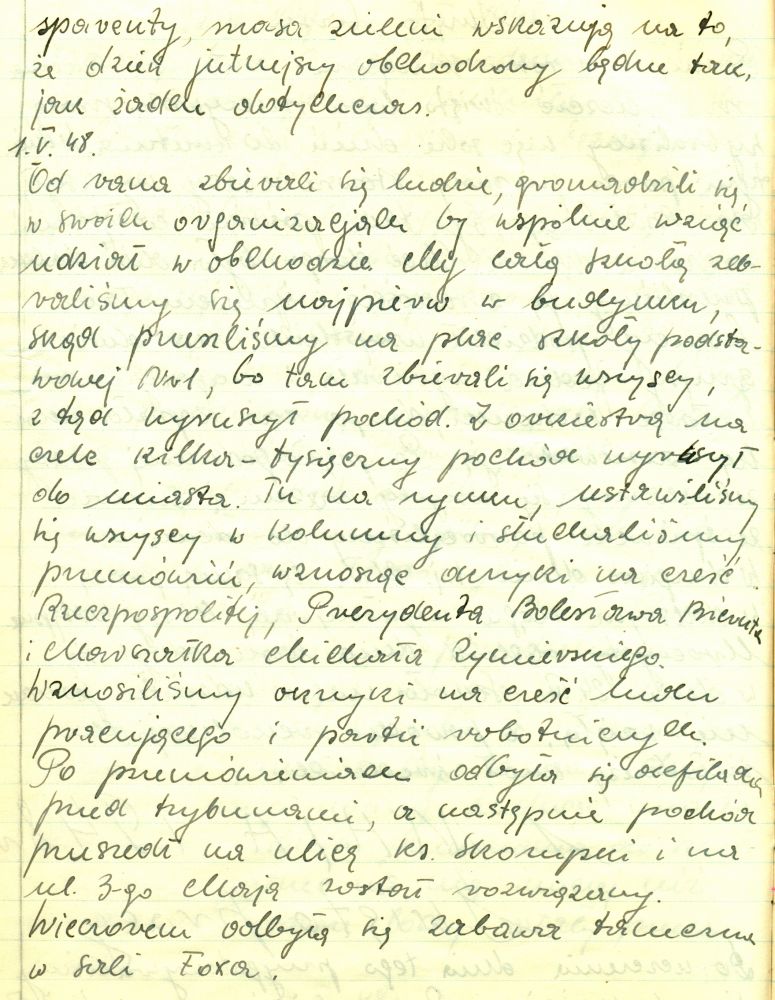 sparenty, masa zieleni wskazują na to,
że dzień jutrzejszy obchodzony będzie tak,
jak żaden dotychczas.
1.V.48.
Od rana zbierali się ludzie, gromadzili się
w swoich organizacjach by wspólnie wziąć
udział w obchodzie. My całą szkołą zeb-
raliśmy się najpierw w budynku,
skąd przeszliśmy na plac szkoły podsta-
wowej Nr1, bo tam zbierali się wszyscy,
z tąd wyruszył pochód. Z orkiestrą na
czele kilka-tysięczny pochód wyruszył
do miasta. Tu na rynku, ustawiliśmy
się wszyscy w kolumny i słuchaliśmy
przemówień, wznosząc okrzyki na cześć
Rzeczpospolitej, Prezydenta Bolesława Bieruta
i Marszałka Michała Żymierskiego.
Wznosiliśmy okrzyki na cześć ludu
pracującego i partii robotniczych.
Po przemówieniach odbyła się defilada
przed trybunami, a następnie pochód
przeszedł na ulicę ks. Skorupki i na
ul. 3-go Maja został rozwiązany.
Wieczorem odbyła się zabawa taneczna
w sali Foxa.